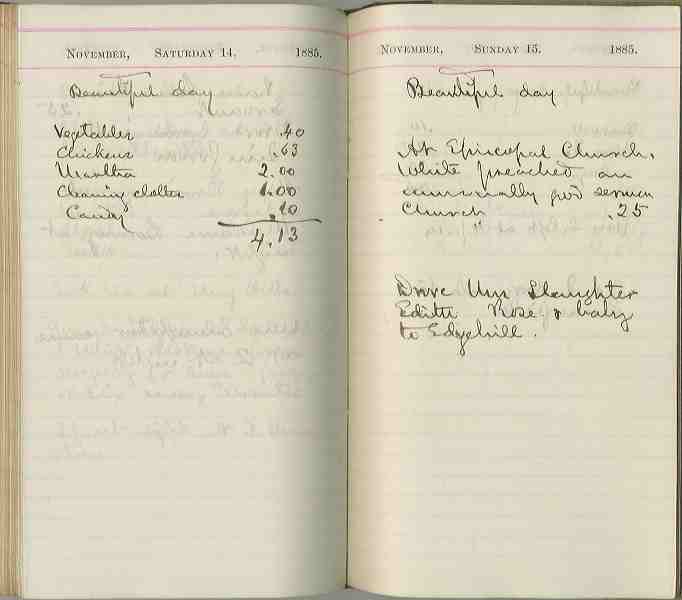 NOVEMBER, SATURDAY 14. 1885.
Beautiful day
Vegetables .40
Chickens .63
Martha 2.00
Cleaning clothes 1.00
Candy .10
4.13
NOVEMBER, SUNDAY 15. 1885.
Beautiful day
At Episcopal Church.
White preached an
unusually good sermon
Church .25
Drove Mrs Slaughter
Edith Rose & baby
to Edgehill.